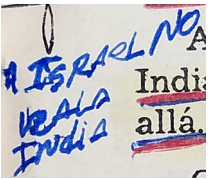 A
ISRAEL NO
VEALA
INDIA
Indi
allá.